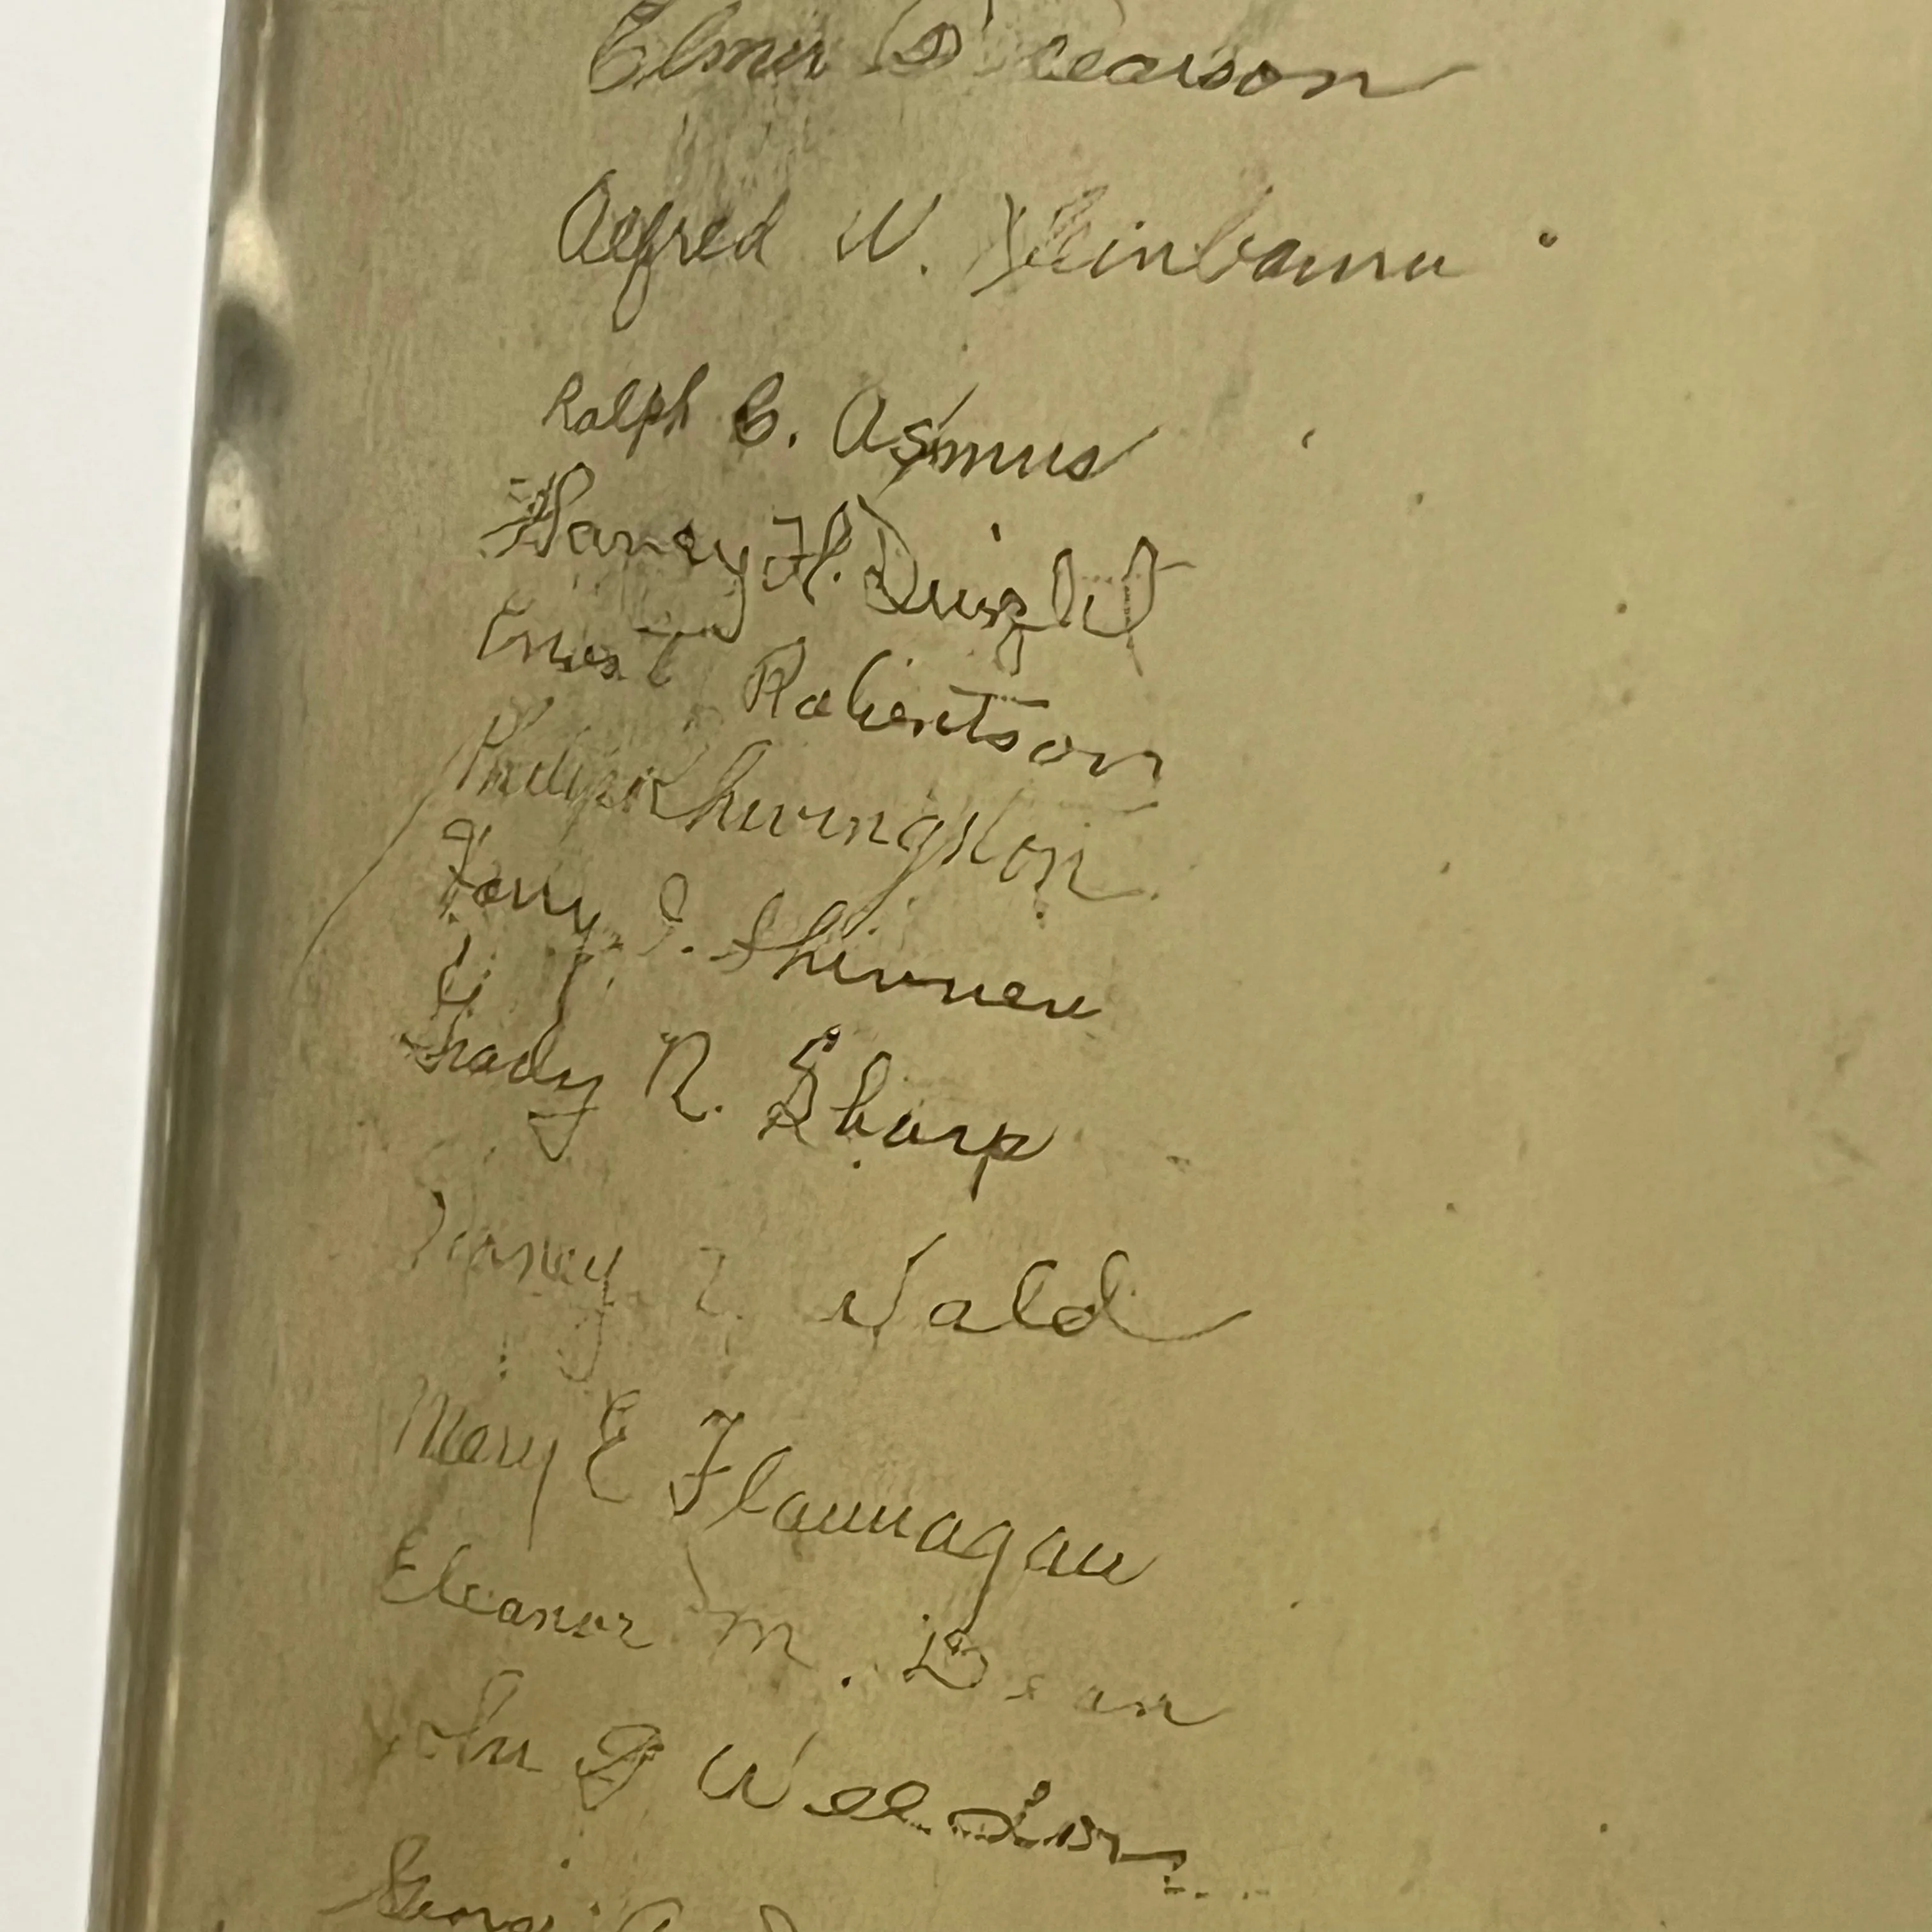 Elmer D Pearson
Alfred W. Kleinbaum
Ralph C. Asmus
Harvey H. Dwight
Ernest Robertson
Philip Livingston
Harry J. Skinner
Grady R. Sharp
Wald
Mary E Flannagan
Eleanor M. Dean
John J Weldon